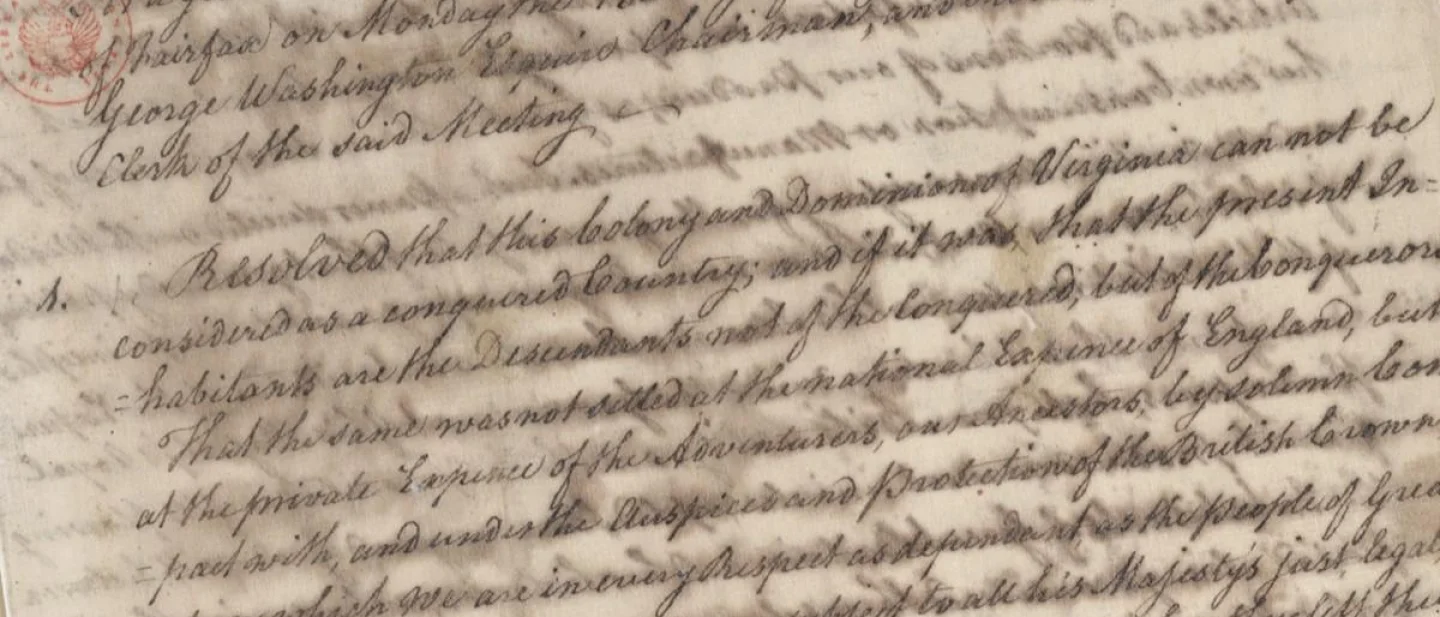 of Fairfax on Monday the
George Washington Esquire Chairman, and
Clerk of the said Meeting
1. Resolved that this Colony and Dominion of Virginia can not be
considered as a conquered Country; and if it was, that the present In=
=habitants are the Descendants not of the Conquered, but of the Conquerors
That the same was not setled at the national Expence of England, but
at the private Expence of the Adventurers, our Ancestors, by solemn Com
=pact with, and under the Auspices and Protection of the British Crown
which we are in every Respect as dependant as the People of Grea
to all his Majesty's just, legal